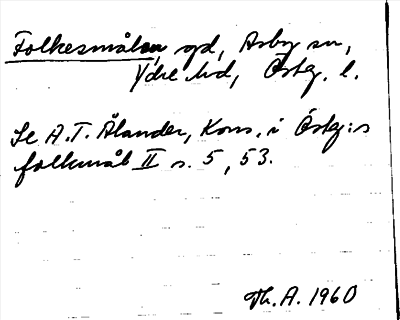 Folkesmålen, gd, Asby sn,
Ydre hd, Östg. l.
Se A.T. Ålander, Kons. i Östg:s
folkmål II s. 5, 53.
Th. A. 1960